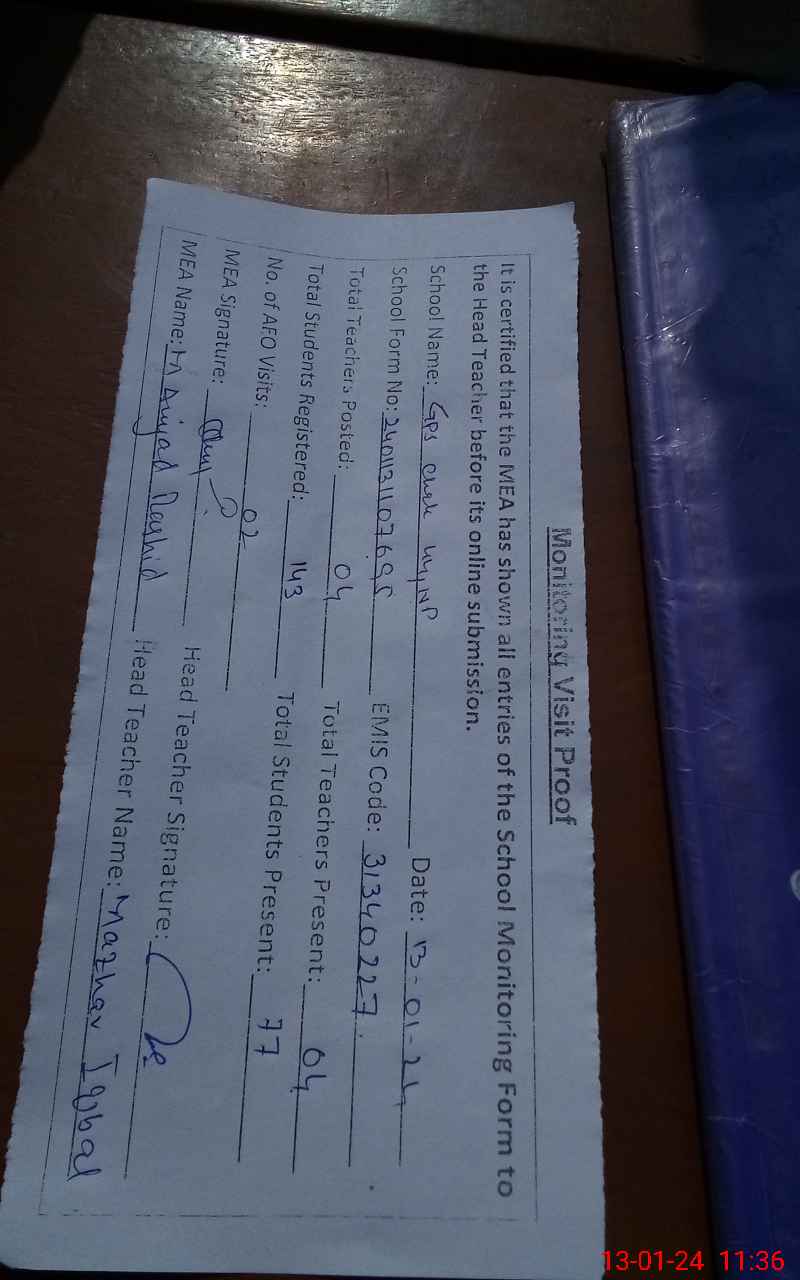 Monitoring Visit Proof
It is certified that the MEA has shown all entries of the School Monitoring Form to
the Head Teacher before its online submission.
School Name: GPS Chak 44/NP Date: 13-01-24
School Form No: EMIS Code: 31340227
Total Teachers Posted: 04 Total Teachers Present: 04
Total Students Registered: 143 Total Students Present: 77
No. of AEO Visits: 02
MEA Signature: Head Teacher Signature:
MEA Name: M Amjad Rashid Head Teacher Name: Mazhar Iqbal
13-01-24 11:36